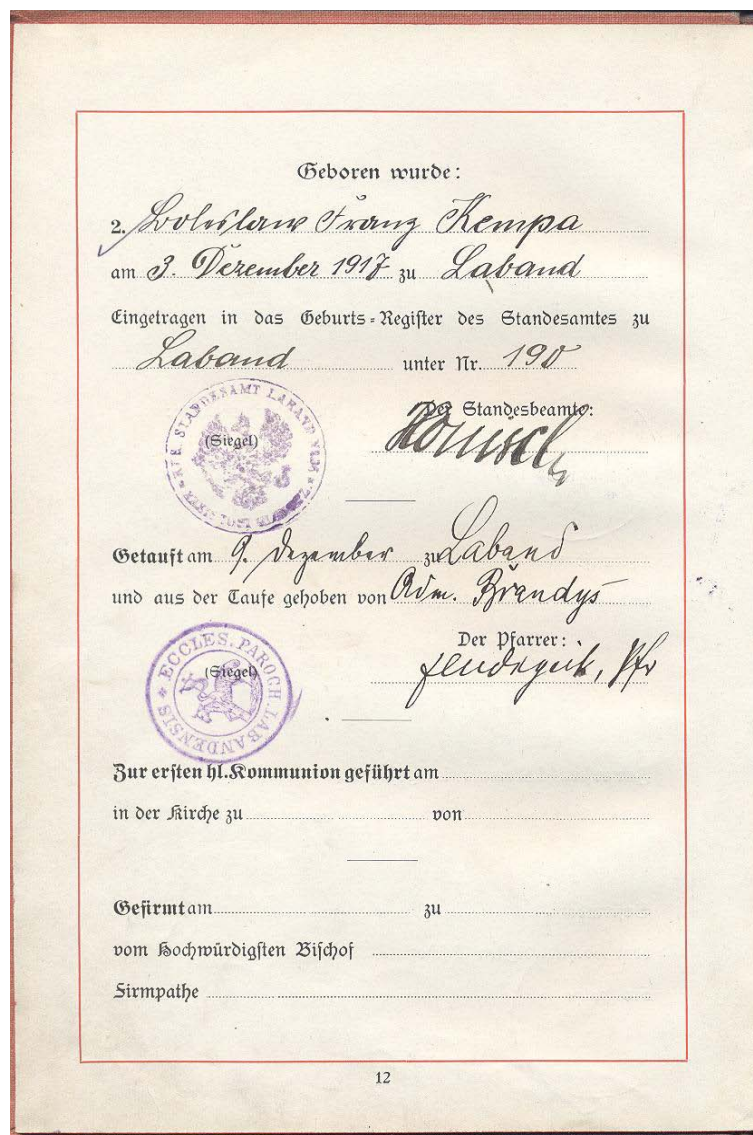 Geboren wurde:
2. Boleslaw Franz Kempa
am 3. Dezember 1917 zu Laband
Eingetragen in das Geburts-Register des Standesamtes zu
Laband unter Nr. 190
Der Standesbeamte:
(Siegel)
STANDESAMT LABAND
Getauft am 9. Dezember zu Laband
und aus der Taufe gehoben von Adm. Brandys
Der Pfarrer:
(Siegel)
Pfr
ECCLES. PAROCH. LABANDENSIS
Zur ersten hl. Kommunion geführt am
in der Kirche zu von
Gefirmt am zu
vom Hochwürdigsten Bischof
Firmpathe
12